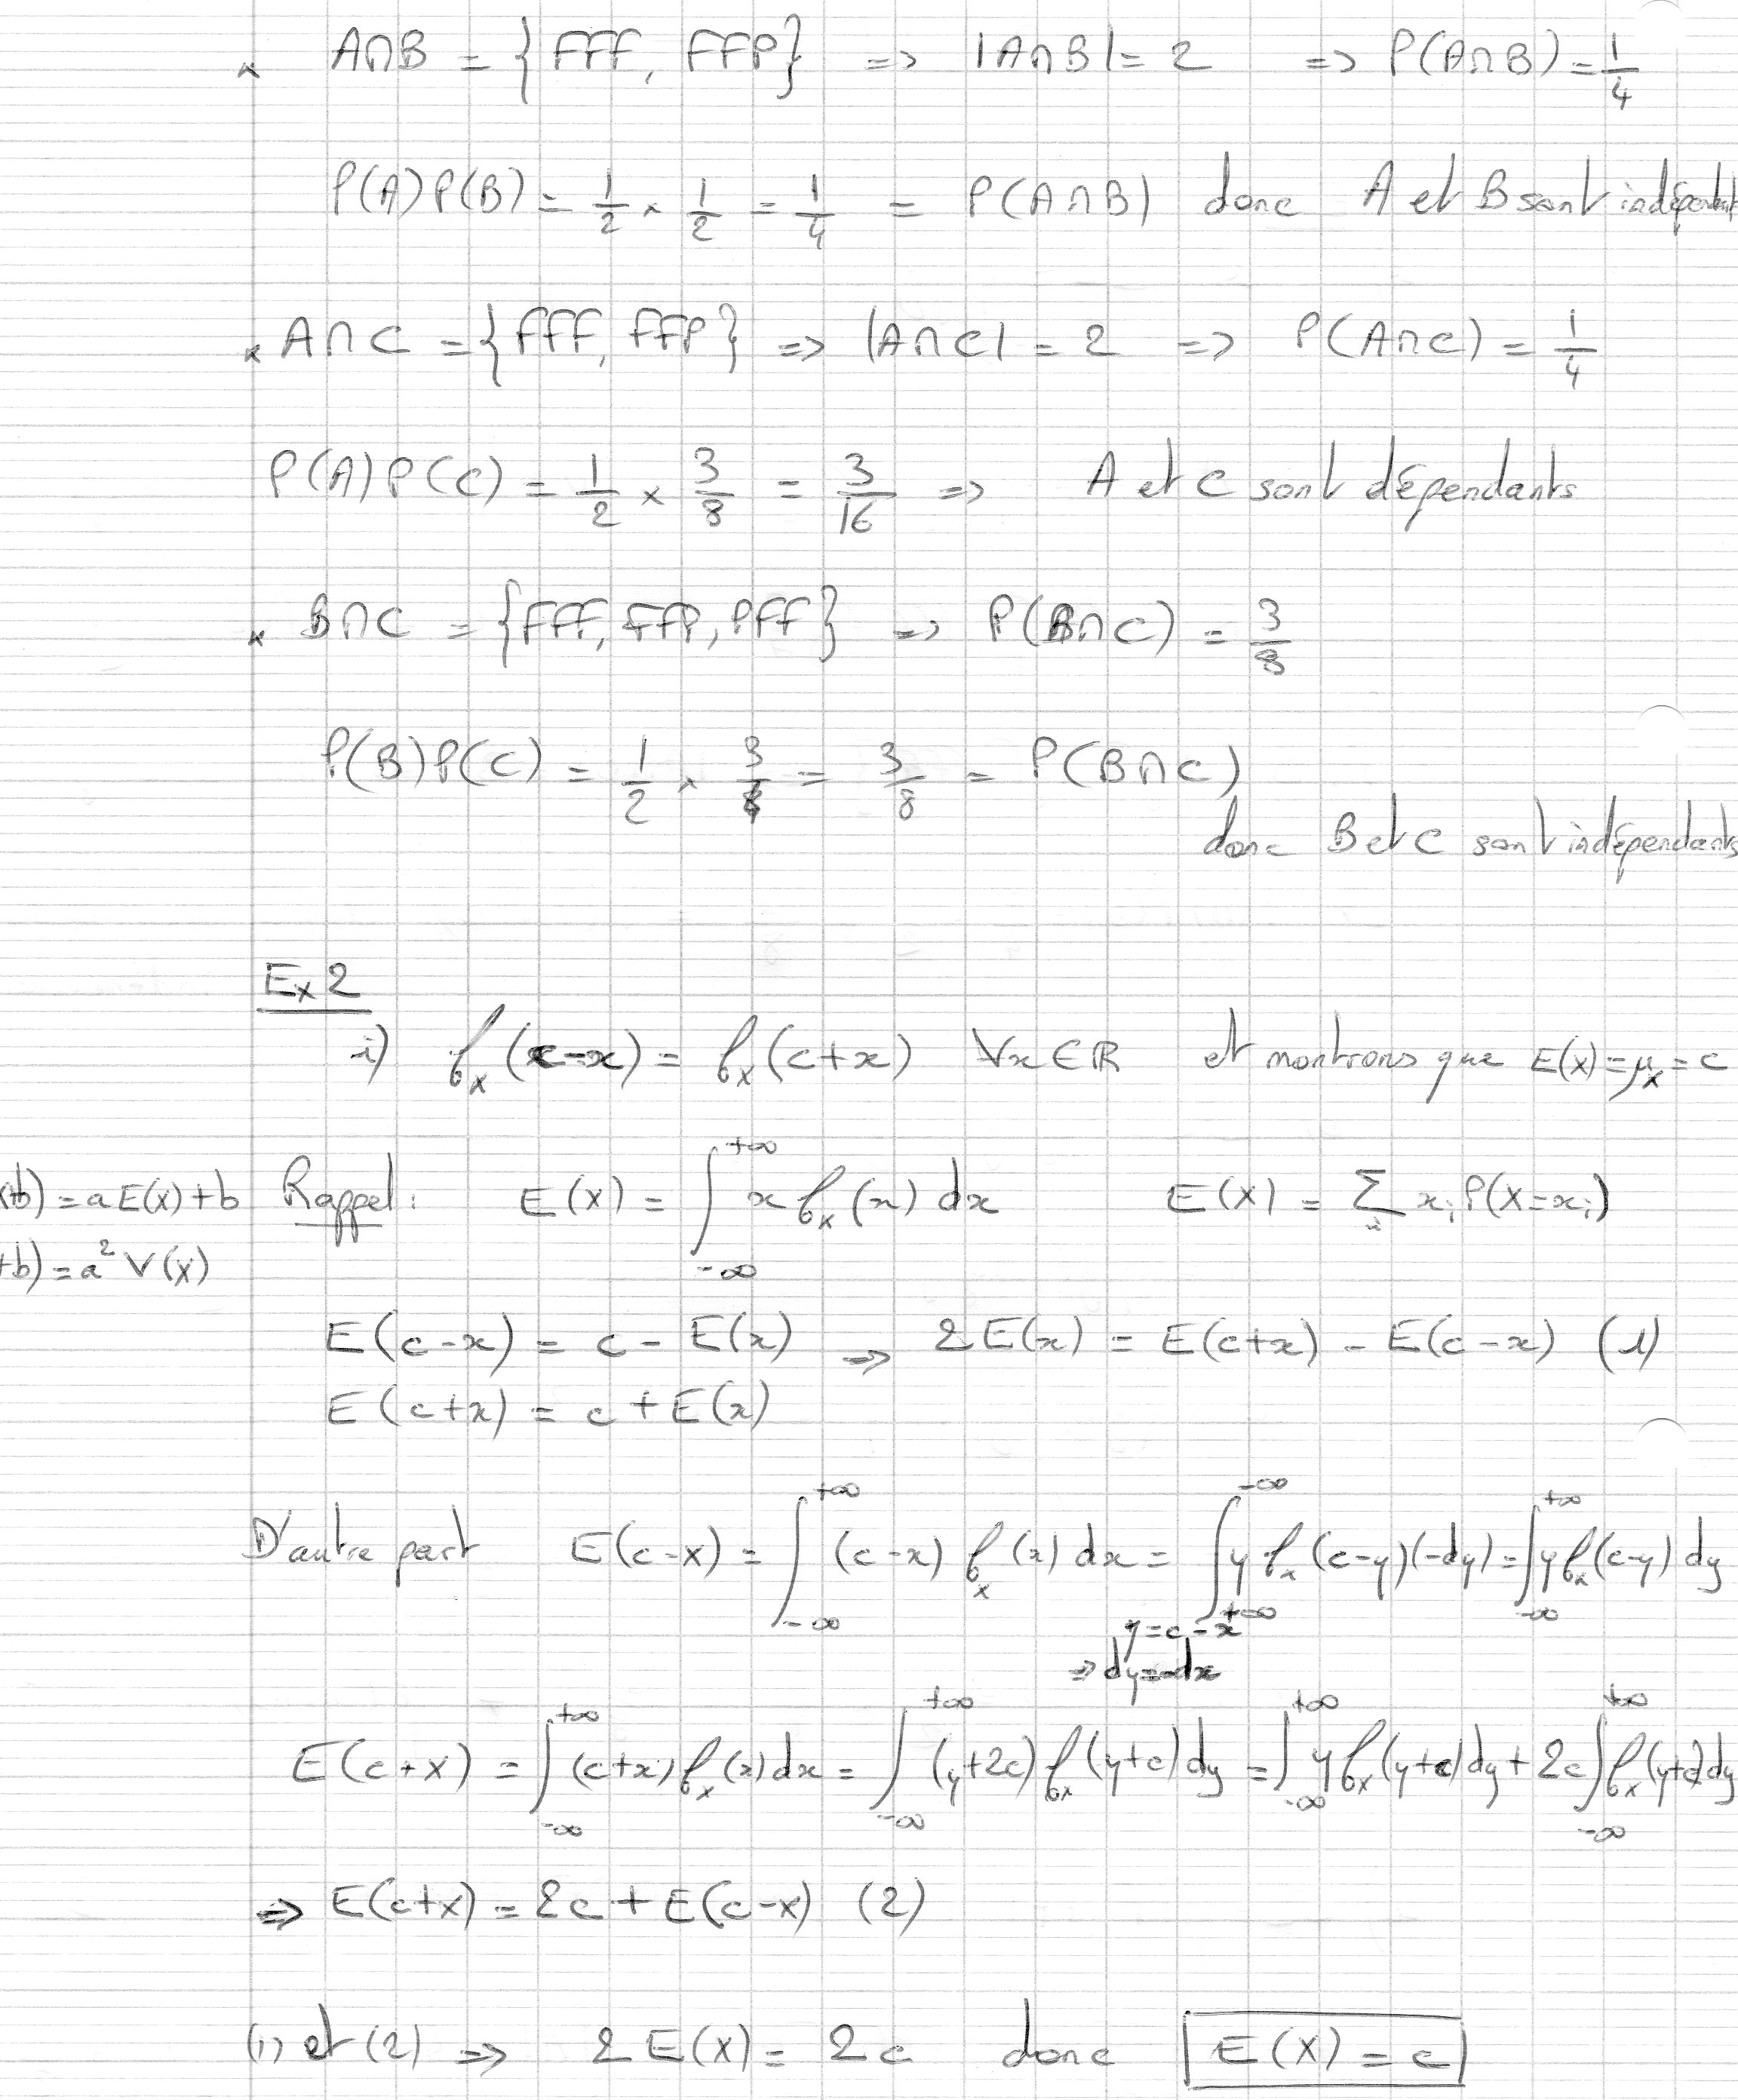 * A∩B = {FFF, FFP} => |A∩B| = 2 => P(A∩B) = 1/4
P(A)P(B) = 1/2 × 1/2 = 1/4 = P(A∩B) donc A et B sont indépendant
* A∩C = {FFF, FFP} => |A∩C| = 2 => P(A∩C) = 1/4
P(A)P(C) = 1/2 × 3/8 = 3/16 => A et C sont dépendants
* B∩C = {FFF, FFP, PFF} => P(B∩C) = 3/8
P(B)P(C) = 1/2 × 3/4 = 3/8 = P(B∩C)
donc B et C sont indépendants
Ex 2
i) f_X(c-x) = f_X(c+x) ∀x∈ℝ et montrons que E(X) = μ_X = c
+b) = aE(X)+b Rappel: E(X) = ∫_{-∞}^{+∞} x f_X(x) dx E(X) = Σ_i x_i P(X=x_i)
+b) = a² V(X)
E(c-x) = c - E(x) => 2E(x) = E(c+x) - E(c-x) (1)
E(c+x) = c + E(x)
D'autre part E(c-X) = ∫_{-∞}^{+∞} (c-x) f_X(x) dx = ∫_{+∞}^{-∞} y f_X(c-y)(-dy) = ∫_{-∞}^{+∞} y f_X(c-y) dy
y = c-x
=> dy = -dx
E(c+X) = ∫_{-∞}^{+∞} (c+x) f_X(x) dx = ∫_{-∞}^{+∞} (y+2c) f_X(y+c) dy = ∫_{-∞}^{+∞} y f_X(y+c) dy + 2c ∫_{-∞}^{+∞} f_X(y+c) dy
=> E(c+X) = 2c + E(c-X) (2)
(1) et (2) => 2E(X) = 2c donc E(X) = c